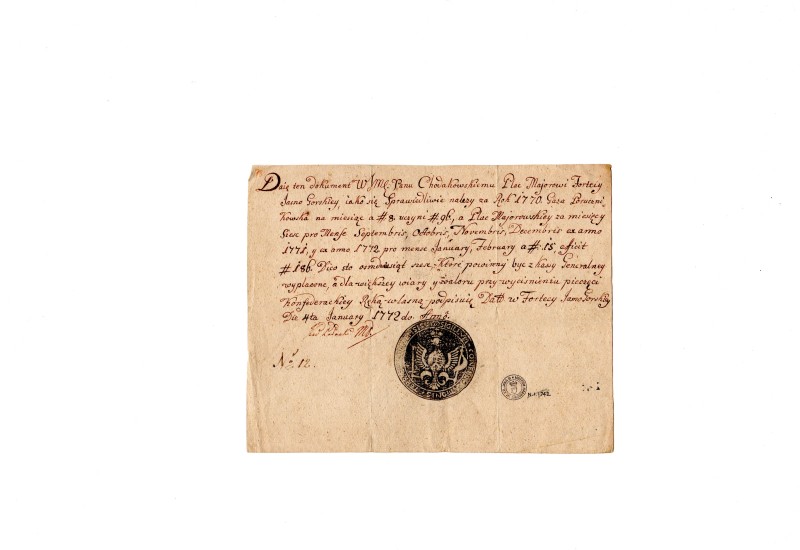 Daię ten dokument W JMć Panu Chodakowskiemu Plac Majorowi Fortecy
Jasno Gorskiey, iako się Sprawiedliwie należy za Rok 1770. Gaża Poruczni
kowska na miesiąc a #8. uczyni #96, a Plac Majorowskiey za miesięcy
Szesc pro Mense Septembris, Octobris, Novembris, Decembris ex anno
1771, y ex anno 1772 pro mense January, February a #. 15 efficit
#186. Dico sto osmdziesiąt szesc, Ktore powinny byc z kassy Generalney
wypłacone, a dla większey wiary y waloru przy wycisnieniu pieczęci
Konfederackiey Ręką własną podpisuię Datt: w Fortecy Jasno Gorskiey
Die 4ta January 1772do Anno.
No. 12.